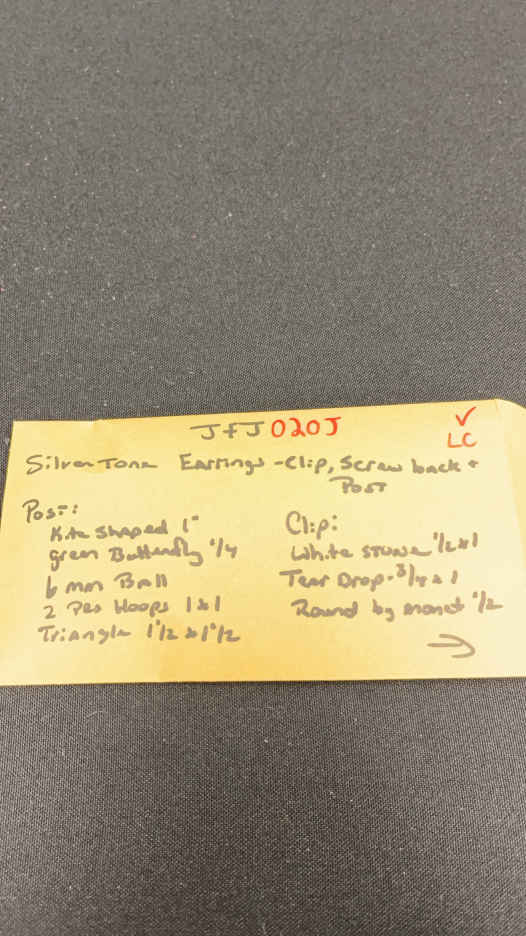 J+J 020J
✓
LC
Silver Tone Earrings - Clip, Screw back +
Post
Post:
Kite shaped 1"
green Butterfly 1/4
6 mm Ball
2 Prs Hoops 1x1
Triangle 1 1/2 x 1 1/2
Clip:
White stone 1/2 x 1
Tear Drop - 3/4 x 1
Round by monet 1/2
→